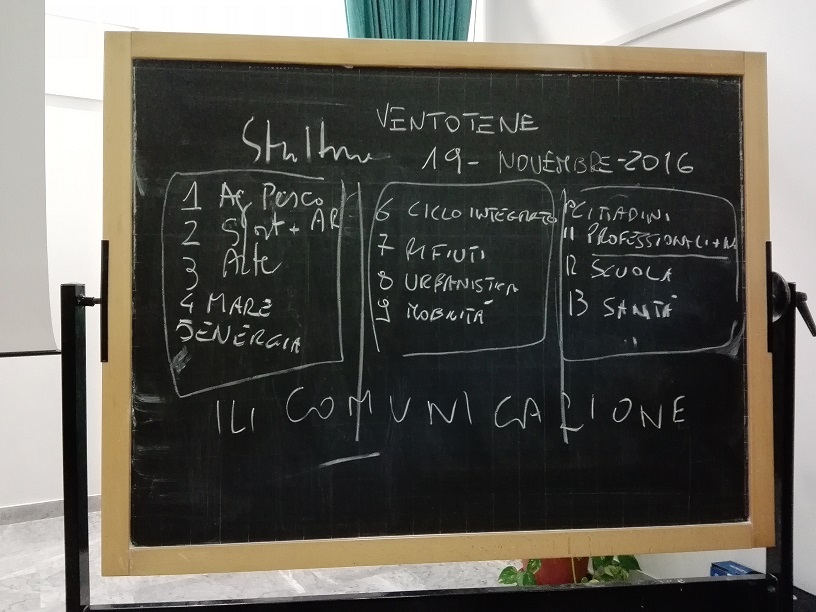 VENTOTENE
19 - NOVEMBRE - 2016
1 Ag Pesca
2
3 Arte
4 MARE
5 ENERGIA
6 CICLO INTEGRATO
7 RIFIUTI
8 URBANISTICA
9 MOBILITÁ
CITTADINI
11 PROFESSIONALI
12 SCUOLA
13 SANITÁ
COMUNICAZIONE